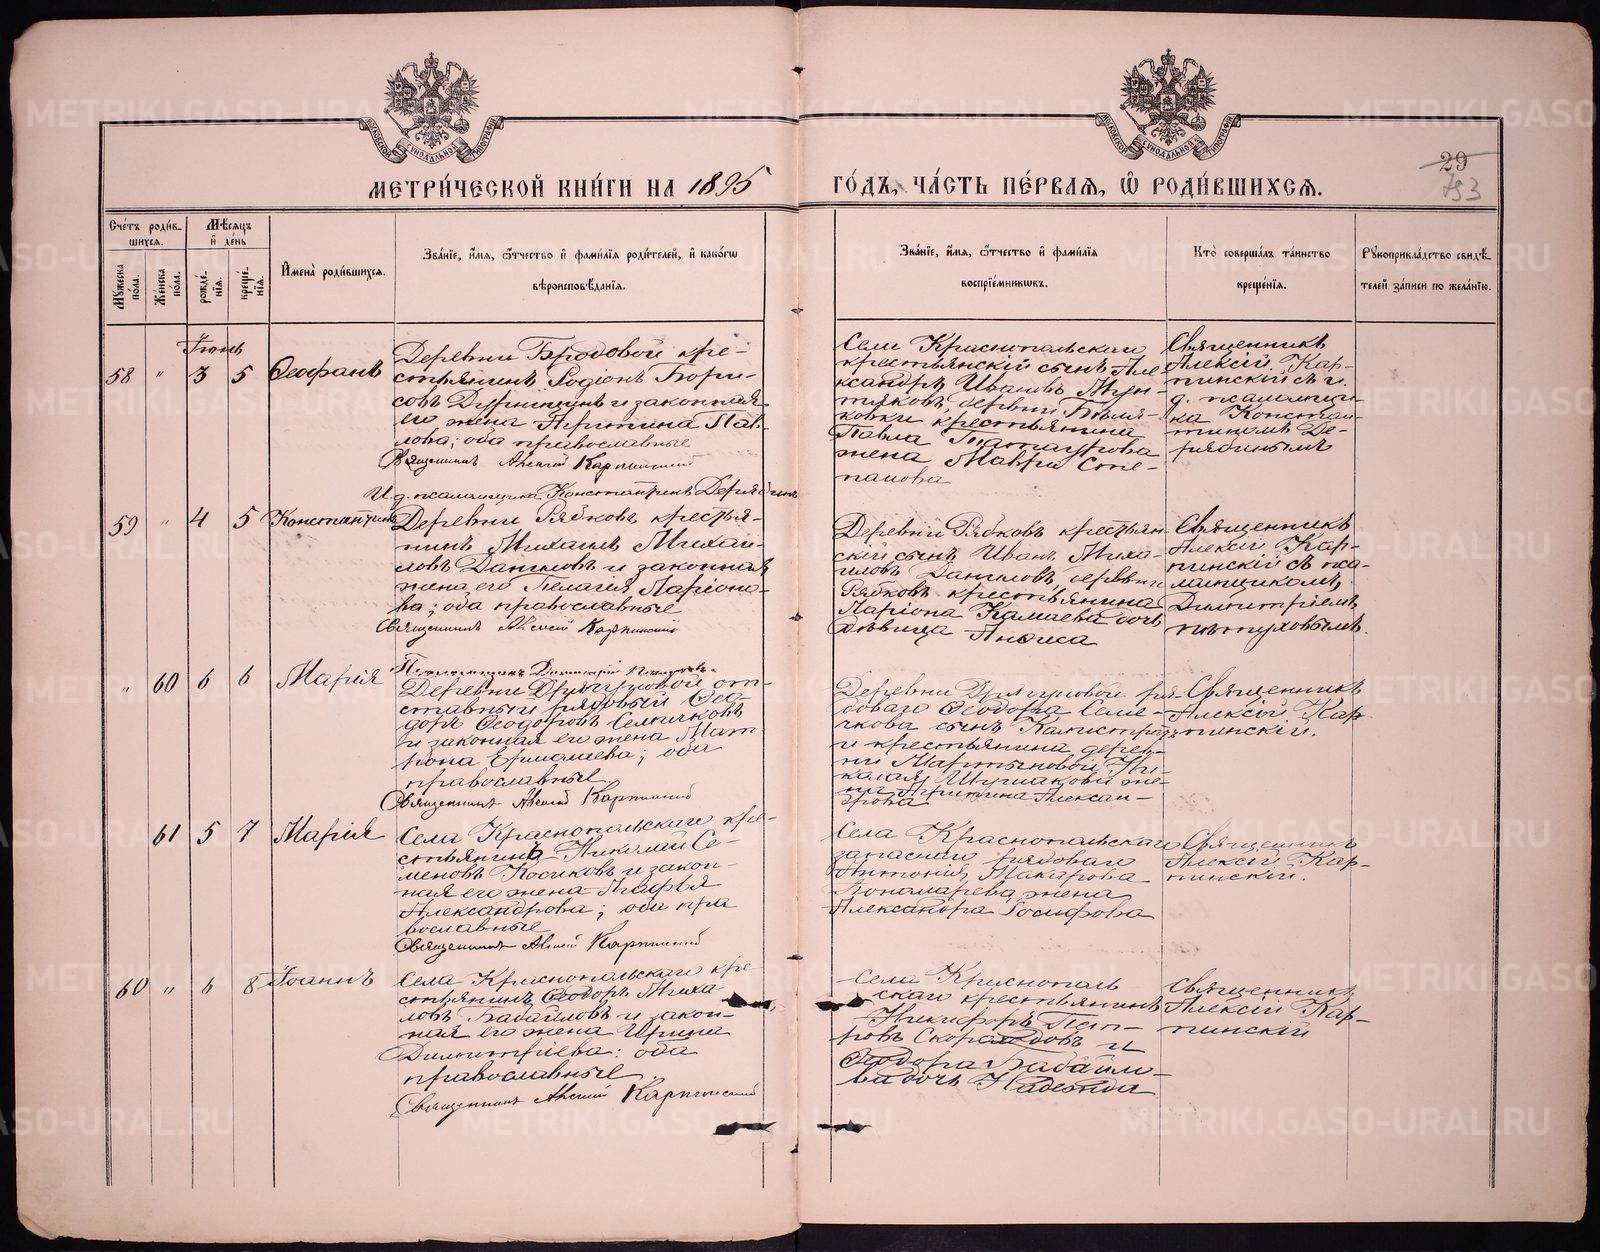 МЕТРИ́ЧЕСКОЙ КНИ́ГИ НА 1895
ГО́ДЪ, ЧА́СТЬ ПЕ́РВАЯ, Ѡ РОДИ́ВШИХСЯ.
29
753
Сче́тъ роди́в-
шихся.
Мѣ́сяцъ
и҆ де́нь
Мꙋ́жеска
по́ла.
Же́нска
по́ла.
рожде́-
нїѧ.
креще́-
нїѧ.
И҆мена̀ роди́вшихся.
Зва́нїе, и҆́мя, ѻ҆́тчество и҆ фами́лїя роди́телей, и҆ како́гѡ
вѣроисповѣ́данїя.
Зва́нїе, и҆́мя, ѻ҆́тчество и҆ фами́лїя
воспрїе́мникѡвъ.
Кто̀ соверша́лъ та́инство
креще́нїя.
Рꙋкоприкла́дство свидѣ́-
телей за́писи по жела́нїю.
Іюнь
58 " 3 5 Ѳеофанъ
Деревни Бродовой кре-
стьянинъ Родіонъ Бори-
совъ и законная
его жена Агрипина Пав-
лова; оба православные
Священникъ Алексій Карпинскій
И. д. псаломщика Константинъ Дерябинъ
Села Краснопольскаго
крестьянскій сынъ Але-
ксандръ Ивановъ
деревни
крестьянина
Павла Татаурова
жена Мавра Сте-
панова
Священникъ
Алексій Кар-
пинскій съ и.
д. псаломщи-
ка Констан-
тиномъ Де-
рябинымъ
59 " 4 5 Константинъ
Деревни Рябковъ крестья-
нинъ Михаилъ Михаи-
ловъ Даниловъ и законная
жена его Пелагия Ларіоно-
ва; оба православные
Священникъ Алексій Карпинскій
Псаломщикъ Димитрій
Деревни Рябковъ крестьян-
скій сынъ Иванъ Миха-
иловъ Даниловъ, деревни
Рябковъ крестьянина
Ларіона Камаева дочь
дѣвица Анфиса
Священникъ
Алексій Кар-
пинскій съ пса-
ломщикомъ
Димитріемъ
" 60 6 6 Марія
Деревни от-
ставный рядовый Ѳео-
доръ Ѳеодоровъ Семячковъ
и законная его жена Мат-
рона Ермашева; оба
православные
Священникъ Алексій Карпинскій
Деревни ря-
доваго Ѳеодора Семя-
чкова сынъ Калистратъ
и крестьянина дерев-
ни Мартыновой Ни-
колая же-
на Агрипина Алексан-
дрова
Священникъ
Алексій Кар-
пинскій.
61 5 7 Марія
Села Краснопольскаго кре-
стьянинъ Николай Се-
меновъ Косиковъ и закон-
ная его жена Агафья
Александрова; оба пра
вославные
Священникъ Алексій Карпинскій
Села Краснопольскаго
запаснаго рядоваго
Антонія Макарова
Пономарева жена
Александра Іосифова
Священникъ
Алексій Кар-
пинскій.
60 " 6 8 Іоаннъ
Села Краснопольскаго кре-
стьянинъ Ѳеодоръ Миха-
ловъ Бабайловъ и закон-
ная его жена Ирина
Димитріева: оба
православные
Священникъ Алексій Карпинскій
Села Краснополь
скаго крестьянинъ
Никифоръ Пет-
ровъ Скороходовъ и
Ѳеодора Бабайло-
ва дочь Надежда
Священникъ
Алексій Кар-
пинскій